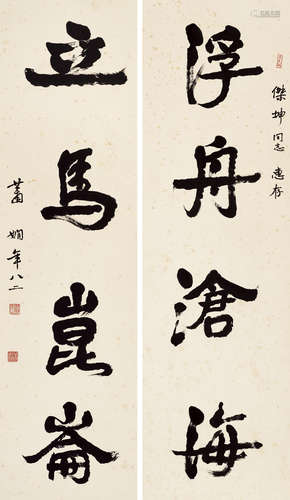 傑坤同志惠存
浮舟滄海
立馬崑崙
蕭嫻年八二